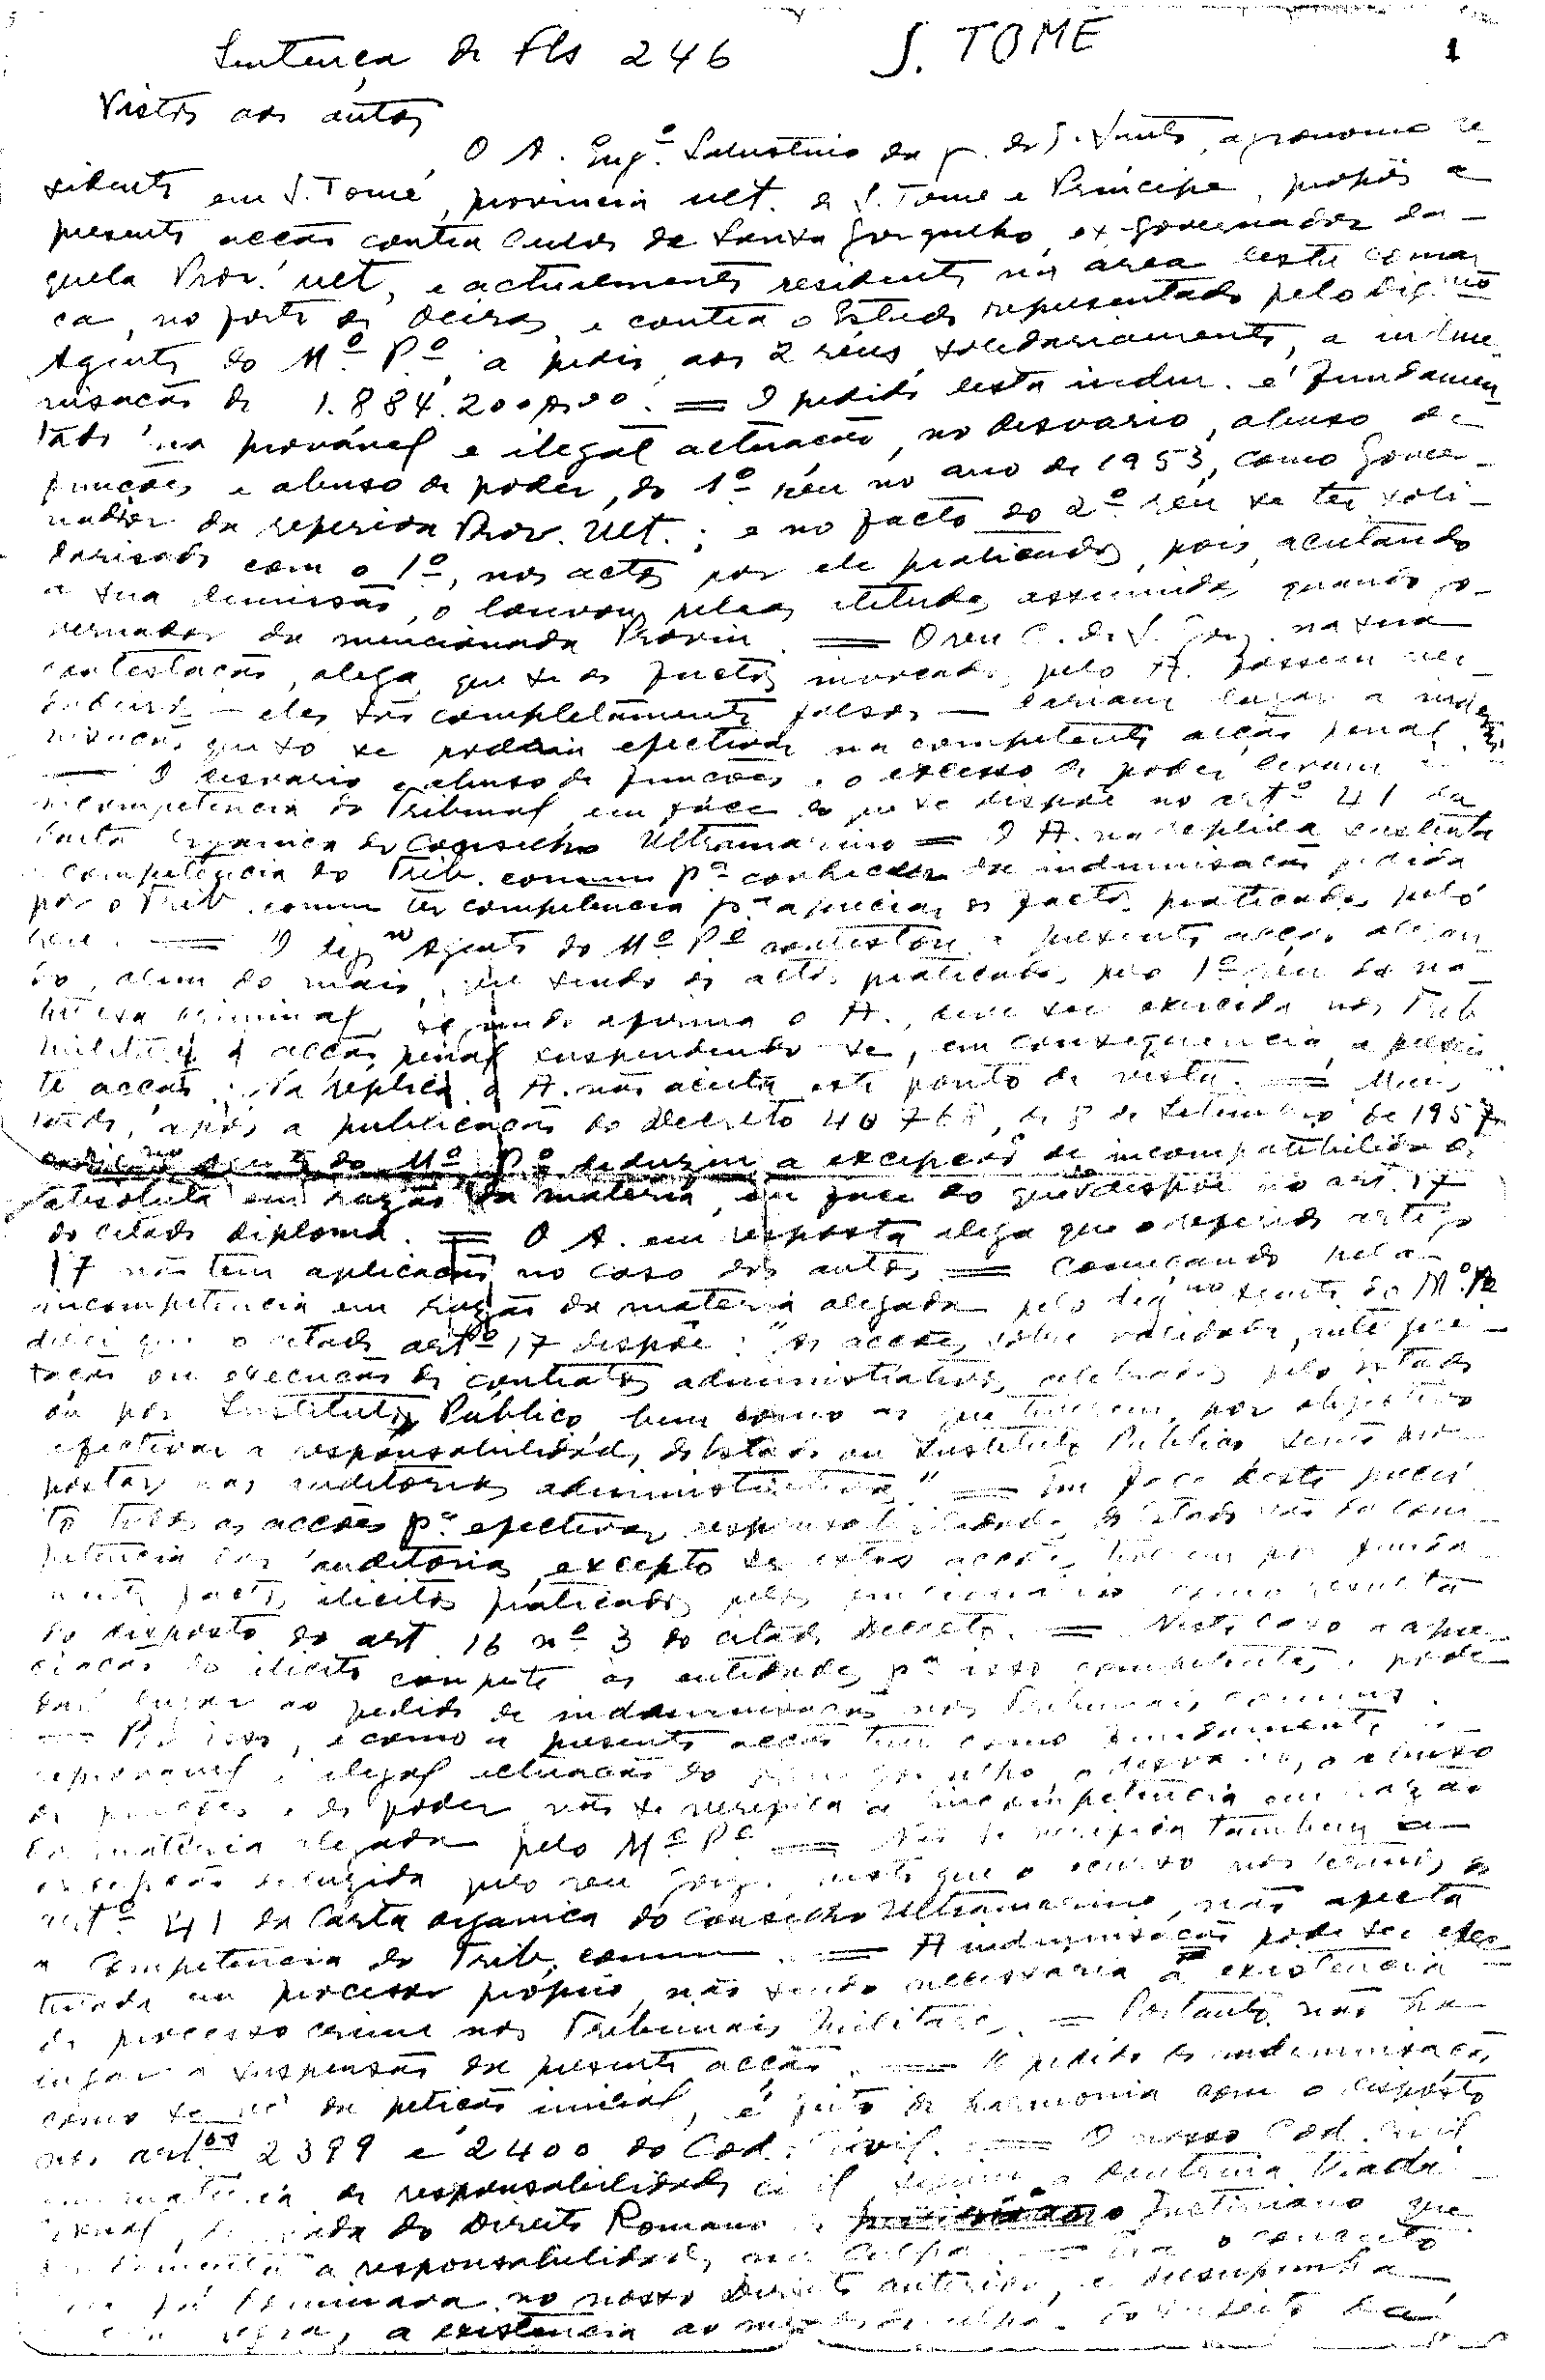 Sentença de Fls 246 S. TOMÉ 1
Vistos aos autos
O A. Eng.º Salustino da G. do E. Santo, agronomo re-
sidente em S. Tomé, provincia ult. de S. Tomé e Príncipe, propôs a
presente acção contra Carlos de Sousa Gorgulho, ex governador da-
quela Prov. ult, e actualmente residente na area desta comar
ca, no forte de Oeiras, e contra o Estado representado pelo dig.mo
Agente do M.º P.º, a pedir aos 2 réus, solidariamente, a indem-
nisação de 1.884.200$00. = O pedido desta indem. é fundamen
tado na provável e ilegal actuação, no desvario, abuso de
funções e abuso de poder, do 1º réu no ano de 1953, como gover-
nador da referida Prov. Ult.; e no facto do 2º réu se ter soli-
darisado com o 1º, nos actos por ele praticados, pois, aceitando
a sua demissão, o louvou pelas atitudes assumidas quando go-
vernador da mencionada Provin = O reu C. de S. Gorg. na sua
contestação, alega que se os factos invocados pelo A. fossem ver-
 — eles são completamente falsos — dariam lugar a indem
nisação que só se podia efectivar na competente acção penal
— O desvario e abuso de funções e o excesso de poder levam á
incompetencia do Tribunal em face do que se dispõe no artº 41 da
Carta Organica do Conselho Ultramarino = O A. na replica sustenta
a competencia do Trib. comum pª conhecer da indemnisação pedida
por o Trib. comum ter competencia pª apreciar os factos praticados pelo
reu. = O dig.mo Agente do Mº Pº contestou a presente acção alegan
do, alem do mais, que sendo os actos praticados pelo 1º réu de na
tureza criminal, segundo afirma o A., deve ser exercida nos Trib
militares a acção penal suspendendo-se, em consequencia, a presen
te acção. Na replica o A. não aceita este ponto de vista. = Mais
tarde, após a publicação do Decreto 40768, de 8 de Setembro de 195
 do Mº Pº deduziu a excepção de incompatibilidade
absoluta em razão da materia, em face do que dispõe no art. 17
do citado diploma. = O A. em resposta alega que o referido artigo
17 não tem aplicação no caso dos autos = Começando pela
incompetencia em razão da materia alegada pelo dig.no agente do Mº Pº
direi que o citado artº 17 dispõe: "As acções sobre validade, interpre-
tação ou execução de contratos administrativos celebrados pelo Estado
ou por Instituto Público bem como as que tiverem por objectivo
efectivar a responsabilidade do Estado ou Instituto Publico serão pro
postas nas auditorias administrativas" = Em face deste precei
to todas as acções pª efectivar responsabilidade do Estado são da com
petencia das auditorias, excepto se estas acções tiverem por funda
mento factos ilicitos praticados pelos funcionarios como resulta
do disposto do art 16 nº 3 do citado Decreto. = Neste caso a apre-
ciação do ilicito compete ás entidades pª isso competentes e pode
dar lugar ao pedido de indemnisação nos Tribunais comuns.
— Por isso, e como a presente acção tem como fundamento a
reprovavel e ilegal actuação do Gorgulho, o desvario, o abuso
de funções e de poder não se verifica a incompetencia em razão
da materia alegada pelo Mº Pº = Não se verifica tambem a
excepção deduzida pelo reu Gorg., visto que o recurso nos termos do
artº 41 da Carta organica do Conselho Ultramarino, não afecta
a Competencia do Trib, comum. = A indemnisação pode ser efec
tuada em processo próprio, não sendo necessaria a existencia
de processo crime nos Tribunais Militares. = Portanto, não ha
lugar a suspensão da presente acção. = O pedido de indemnisação
como se vê da petição inicial, é feito de harmonia com o disposto
nos art.os 2399 e 2400 do Cod. Civil. = O nosso Cod. Civil
em materia de responsabilidade civil seguiu a doutrina tradi-
cional, derivada do Direito Romano Justiniano que
fundamenta a responsabilidade na culpa. = o conceito
 já dominava no nosso Direito anterior, e pressupunha
 regra, a existencia ao menos de culpa do sujeito